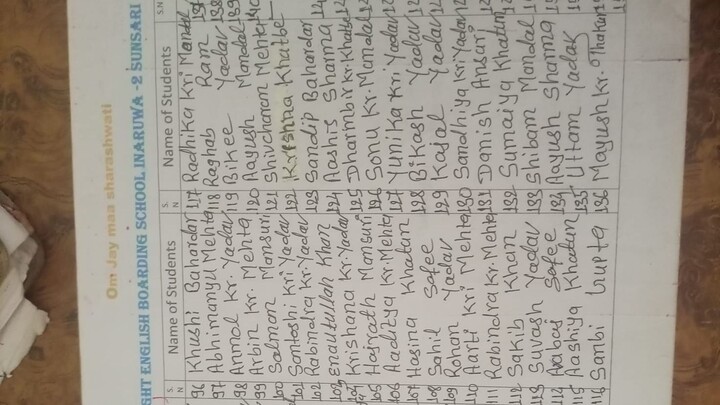 Om Jay maa sharashwati
GHT ENGLISH BOARDING SCHOOL INARUWA -2 SUNSARI
S.N Name of Students S.N Name of Students S.N
96 Khushi Bahardar 117 Radhika Kri Mandal
97 Abhimanyu Mehta 118 Raghab Ram
98 Anmol Kr. Yadav 119 Bikee Yadav
99 Arbin Kr. Mehta 120 Aayush Mandal
100 Salman Mansuri 121 Shivcharan Mehta
101 Santoshi Kri Yadav 122 Krishna Khatbe
102 Rabindra Kr. Yadav 123 Sandip Bahardar
103 Enautullah Khan 124 Aashis Sharma
104 Krishana Kr. Yadav 125 Dharmbir Kr. Khatbe
105 Hajrath Mansuri 126 Sonu Kr. Mandal
106 Aaditya Kr. Mehta 127 Yunika Kri Yadav
107 Hasina Khatun 128 Bikash Yadav
108 Sahil Safee 129 Kajal Yadav
109 Rohan Yadav 130 Sandhiya Kri Yadav
110 Aarti Kri Mehta 131 Danish Ansari
111 Rabindra Kr. Mehta 132 Sumaiya Khatun
112 Sakib Khan 133 Shibam Mandal
113 Suvash Yadav 134 Aayush Sharma
114 Safee 135 Uttam Yadav
115 Aashiya Khatun 136 Mayush Kr. Thakur
116 Sanbi Gupta